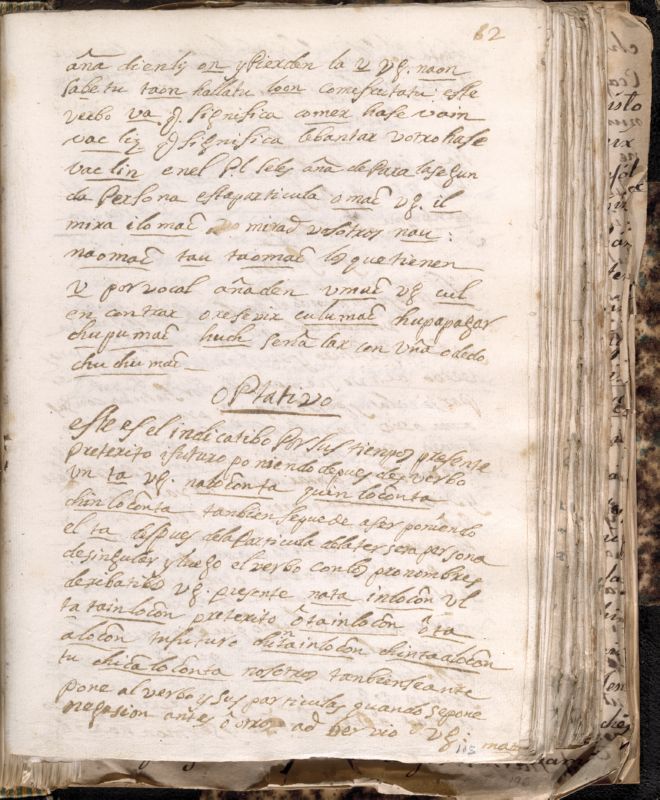 62
aña dienlẽ on y Pierden la v vg. naon
sabe tu taon hallatu loon comesretatu este
verbo va q̃ significa comer hase vain
vac liz q̃ significa lebantar v otro hase
vac lin enel Pl sele aña de Para lasegun
da Persona estaparticula omaĉ vg. il
mira ilomaĉ mirad vosotros nau:
naomaĉ tau taomaĉ los que tienen
v por vocal añaden umaĉ vg cul
en contrar o resevir culumaĉ hupapagar
chupumaĉ huch señalar con vña o dedo
chuchumaĉ
OPtativo
este es el indicatibo Por sus tiempos presente
preterito ifuturo poniendo depues de verbo
vn ta vg. naloconta quinloconta
chinloconta tanbien se puede aser poniendo
el ta despues dela Particula dela tersera persona
desingular y luego el verbo con los pronombres
deribatibos vg. presente nata inlocon vl
ta tainlocon preterito õtainlocon õta
alocon infuturo chitainlocon chintaalocon
tu chicaloconta nosotros tanbien se ante
pone al verbo y sus particulas quando se pone
negasion antes õ otro adverbio vg. ma
113